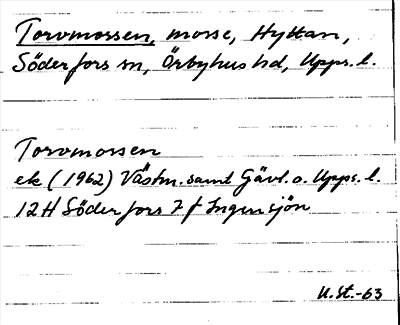 Torvmossen, mosse, Hyttan,
Söderfors sn, Örbyhus hd, Upps. l.
Torvmossen
ek (1962) Västm. samt Gävl. o. Upps. l.
12H Söderfors 7 f Ingensjön
U. St. -63